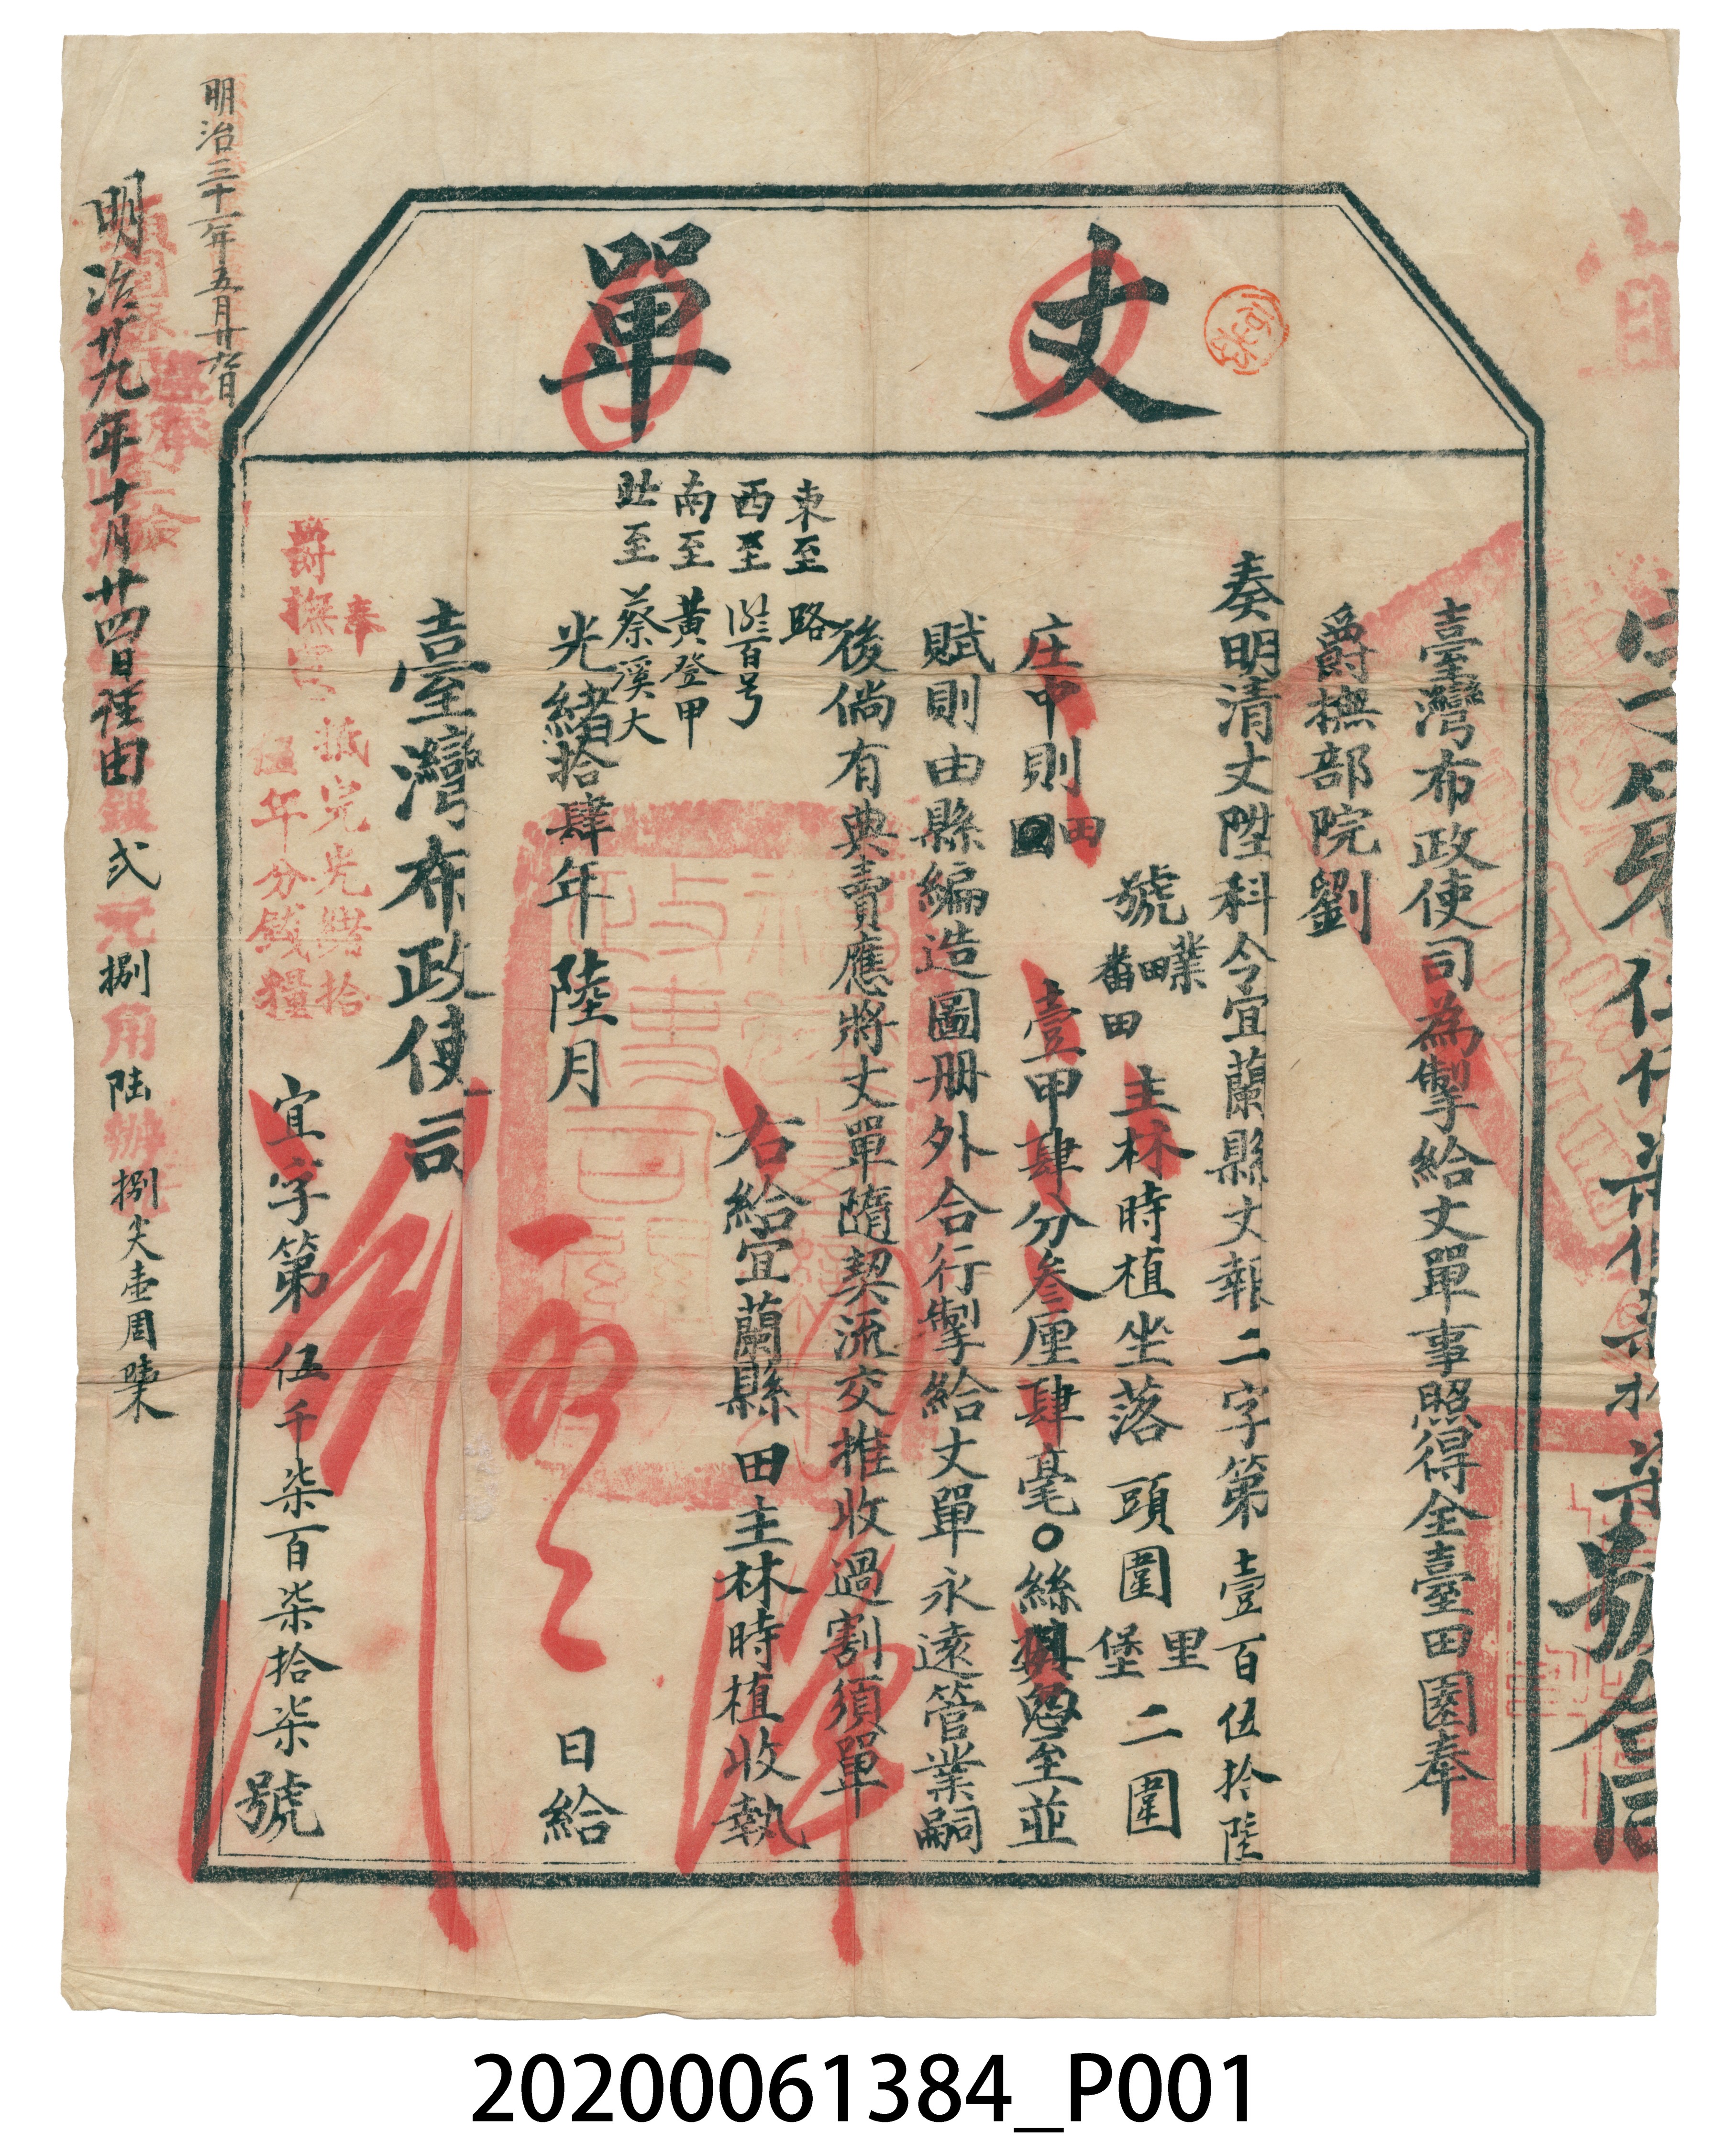 丈單
臺灣布政使司為掣給丈單事照得全臺田園奉
爵撫部院劉
奏明清丈陞科今宜蘭縣丈報二字第壹百伍拾陸
號業田番田主林時植坐落頭圍里堡二圍
庄中則田壹甲肆分叁厘肆毫〇絲忽至並
賦則由縣編造圖册外合行掣給丈單永遠管業嗣
後倘有典賣應將丈單隨契流交推收過割須單
東至路
西至百号
南至黃登甲
北至蔡溪大
右給宜蘭縣田主林時植收執
光緒拾肆年陸月日給
臺灣布政使司
奉
爵撫憲抵完光緒拾
年分錢糧
宜字第伍千柒百柒拾柒號
明治三十一年五月廿九日
明治廿九年十月廿四日
弍元捌角陆辦捌尖壷周
號合同
20200061384_P001